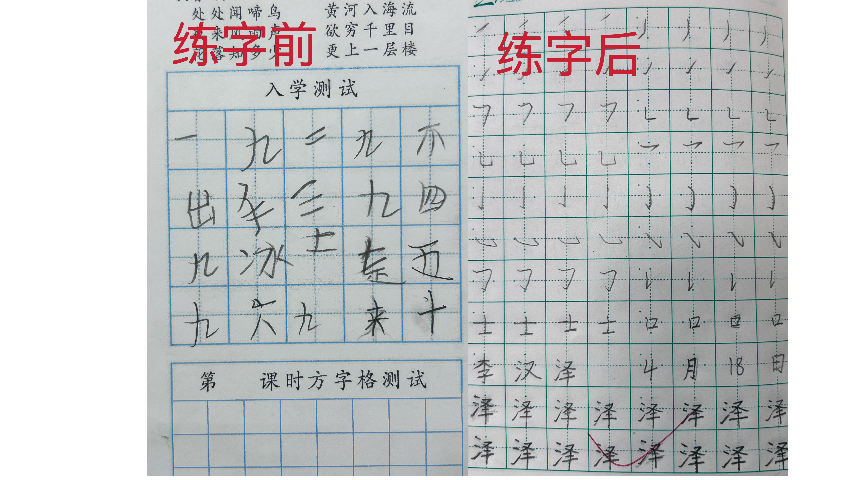 处处闻啼鸟 黄河入海流
欲穷千里目
更上一层楼
练字前
入学测试
一九二九不
出手三九四
九冰上走五
九六九来斗
第 课时方字格测试
练字后
士士士士口口口口
李汉泽 4月18日
泽泽泽泽泽泽泽泽
泽泽泽泽泽泽泽泽